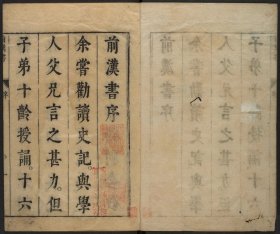 前漢書序
余嘗勸讀史記與學
人父兄言之甚力但
子弟十齡授誦十六